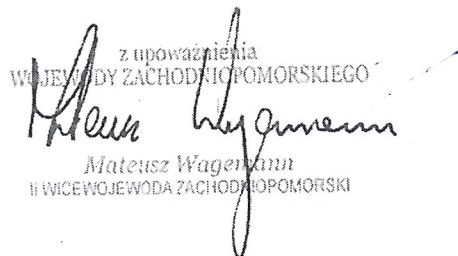 z upoważnienia
WOJEWODY ZACHODNIOPOMORSKIEGO
Mateusz Wagemann
Mateusz Wagemann
II WICEWOJEWODA ZACHODNIOPOMORSKI